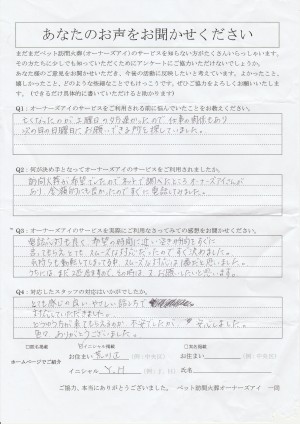 あなたのお声をお聞かせください
まだまだペット訪問火葬(オーナーズアイ)のサービスを知らない方がたくさんいらっしゃいます。
そのかたたちに少しでも知っていただくためにアンケートにご協力いただけないでしょうか。
あなた様のご意見をお聞かせいただき、今後の活動に反映したいと考えています。よかったこと、
嬉しかったこと、どのような些細なことでもけっこうです。ぜひご協力をよろしくお願いいたします。
(できるだけ具体的に書いていただけると助かります)
Q1:オーナーズアイのサービスをご利用される前に悩んでいたことをお教えください。
亡くなったのが土曜日の夕方だったので仕事の関係もあり
次の日の日曜日にお願いできる所を探していました。
Q2:何が決め手となってオーナーズアイのサービスをご利用されましたか。
訪問火葬が希望でしたのでネットで調べたところオーナーズアイさんが
あり、金額的にも良かったのですぐに電話してみました。
Q3:オーナーズアイのサービスを実際にご利用なさってみての感想をお聞かせください。
電話の対応も良く、希望の時間に近い空き時間をすぐに
言ってもらえとても、スムーズな対応だったのですぐ決めました。
気持ちも動転してしまう中、スムーズな対応は有難いと思いました。
うちには、まだ3匹居るので、その時は、又、お願いしたいと思います。
Q4:対応したスタッフの対応はいかがでしたか。
とても感じの良い、やさしい話し方で
対応していただきました。
どんな方が来てもらえるのか、不安でしたが、安心しました。
色々、ありがとうございました。
□匿名掲載 ☑イニシャル掲載 □実名掲載
ホームページでご紹介
お住まい 荒川区 (例:中央区) お住まい (例:中央区)
イニシャル Y.H (例:F.H) 氏名
ご協力、本当にありがとうございました。 ペット訪問火葬オーナーズアイ 一同